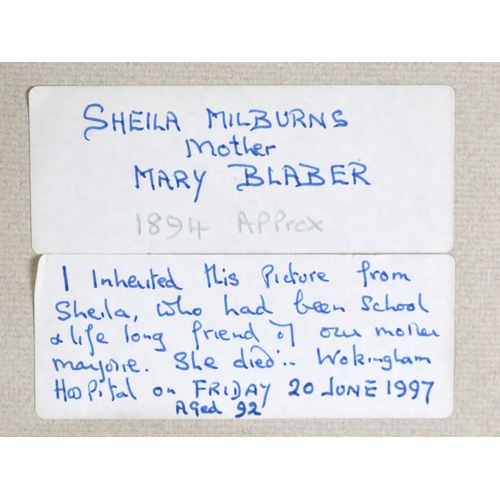 SHEILA MILBURNS
Mother
MARY BLABER
1894 APProx
I Inherited this Picture from
Sheila, who had been School
& life long friend of our mother
marjorie. She died .. Wokingham
Hospital on FRIDAY 20 JUNE 1997
Aged 92